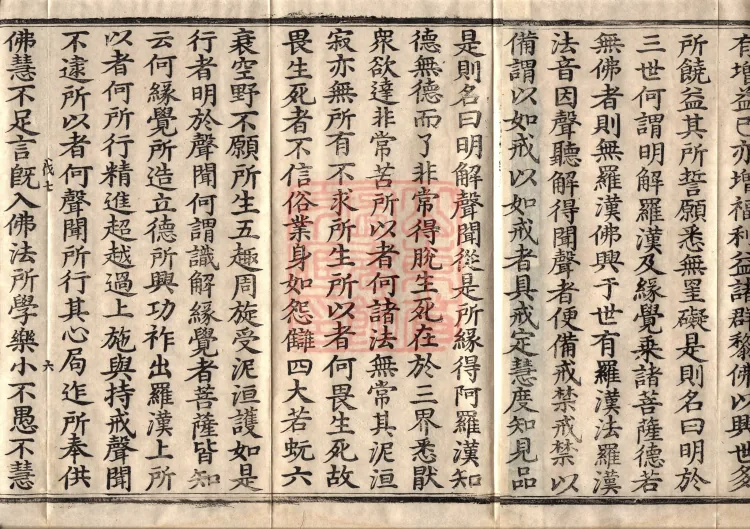 有增益已亦增福利益諸群黎佛以興世多
所饒益其所誓願悉無罣礙是則名曰明於
三世何謂明解羅漢及緣覺乘諸菩薩德若
無佛者則無羅漢佛興于世有羅漢法羅漢
法音因聲聽解得聞聲者便備戒禁戒禁以
備謂以如戒以如戒者具戒定慧度知見品
是則名曰明解聲聞從是所緣得阿羅漢知
德無德而了非常得脫生死在於三界悉猒
衆欲達非常苦所以者何諸法無常其泥洹
寂亦無所有不求所生所以者何畏生死故
畏生死者不信俗業身如怨讎四大若蚖六
衰空野不願所生五趣周旋受泥洹護如是
行者明於聲聞何謂識解緣覺者菩薩皆知
云何緣覺所造立德所興功祚出羅漢上所
以者何所行精進超越過上施與持戒聲聞
不逮所以者何聲聞所行其心局迮所奉供
戊七
六
佛慧不足言旣入佛法所學樂小不愚不慧